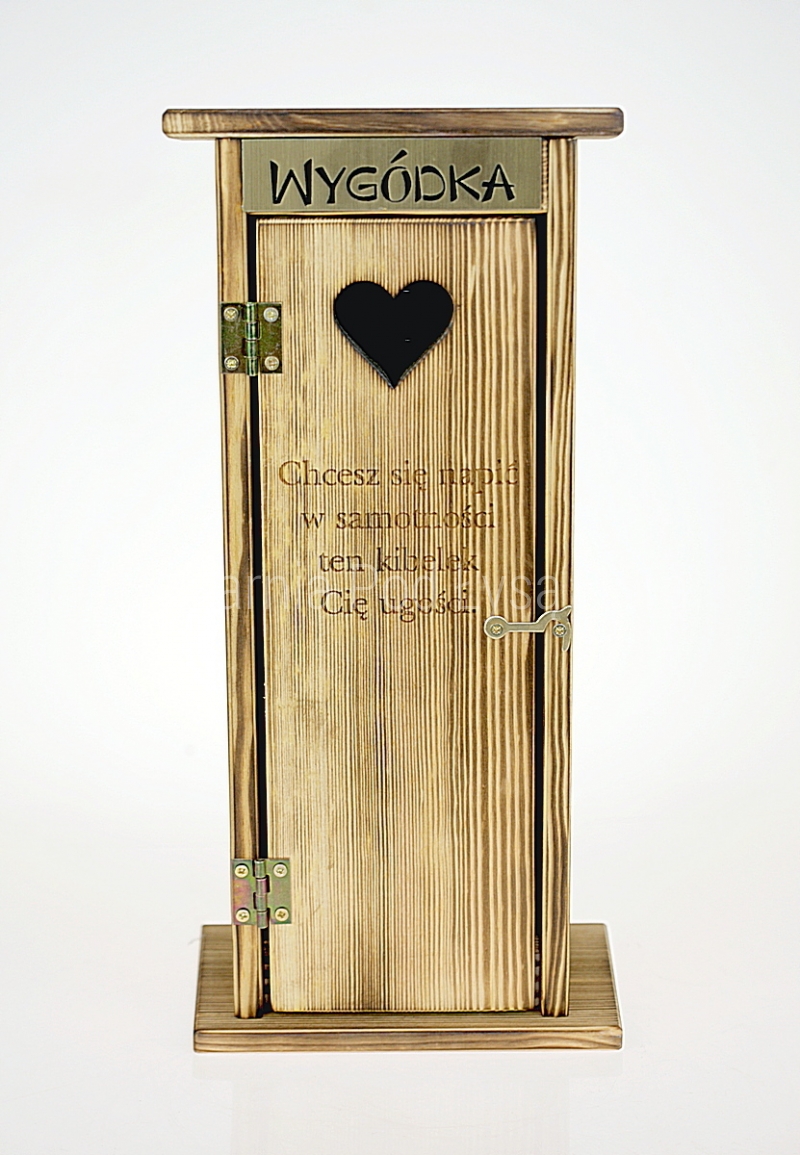 WYGÓDKA
Chcesz się napić
w samotności
ten kibelek
Cię ugości.